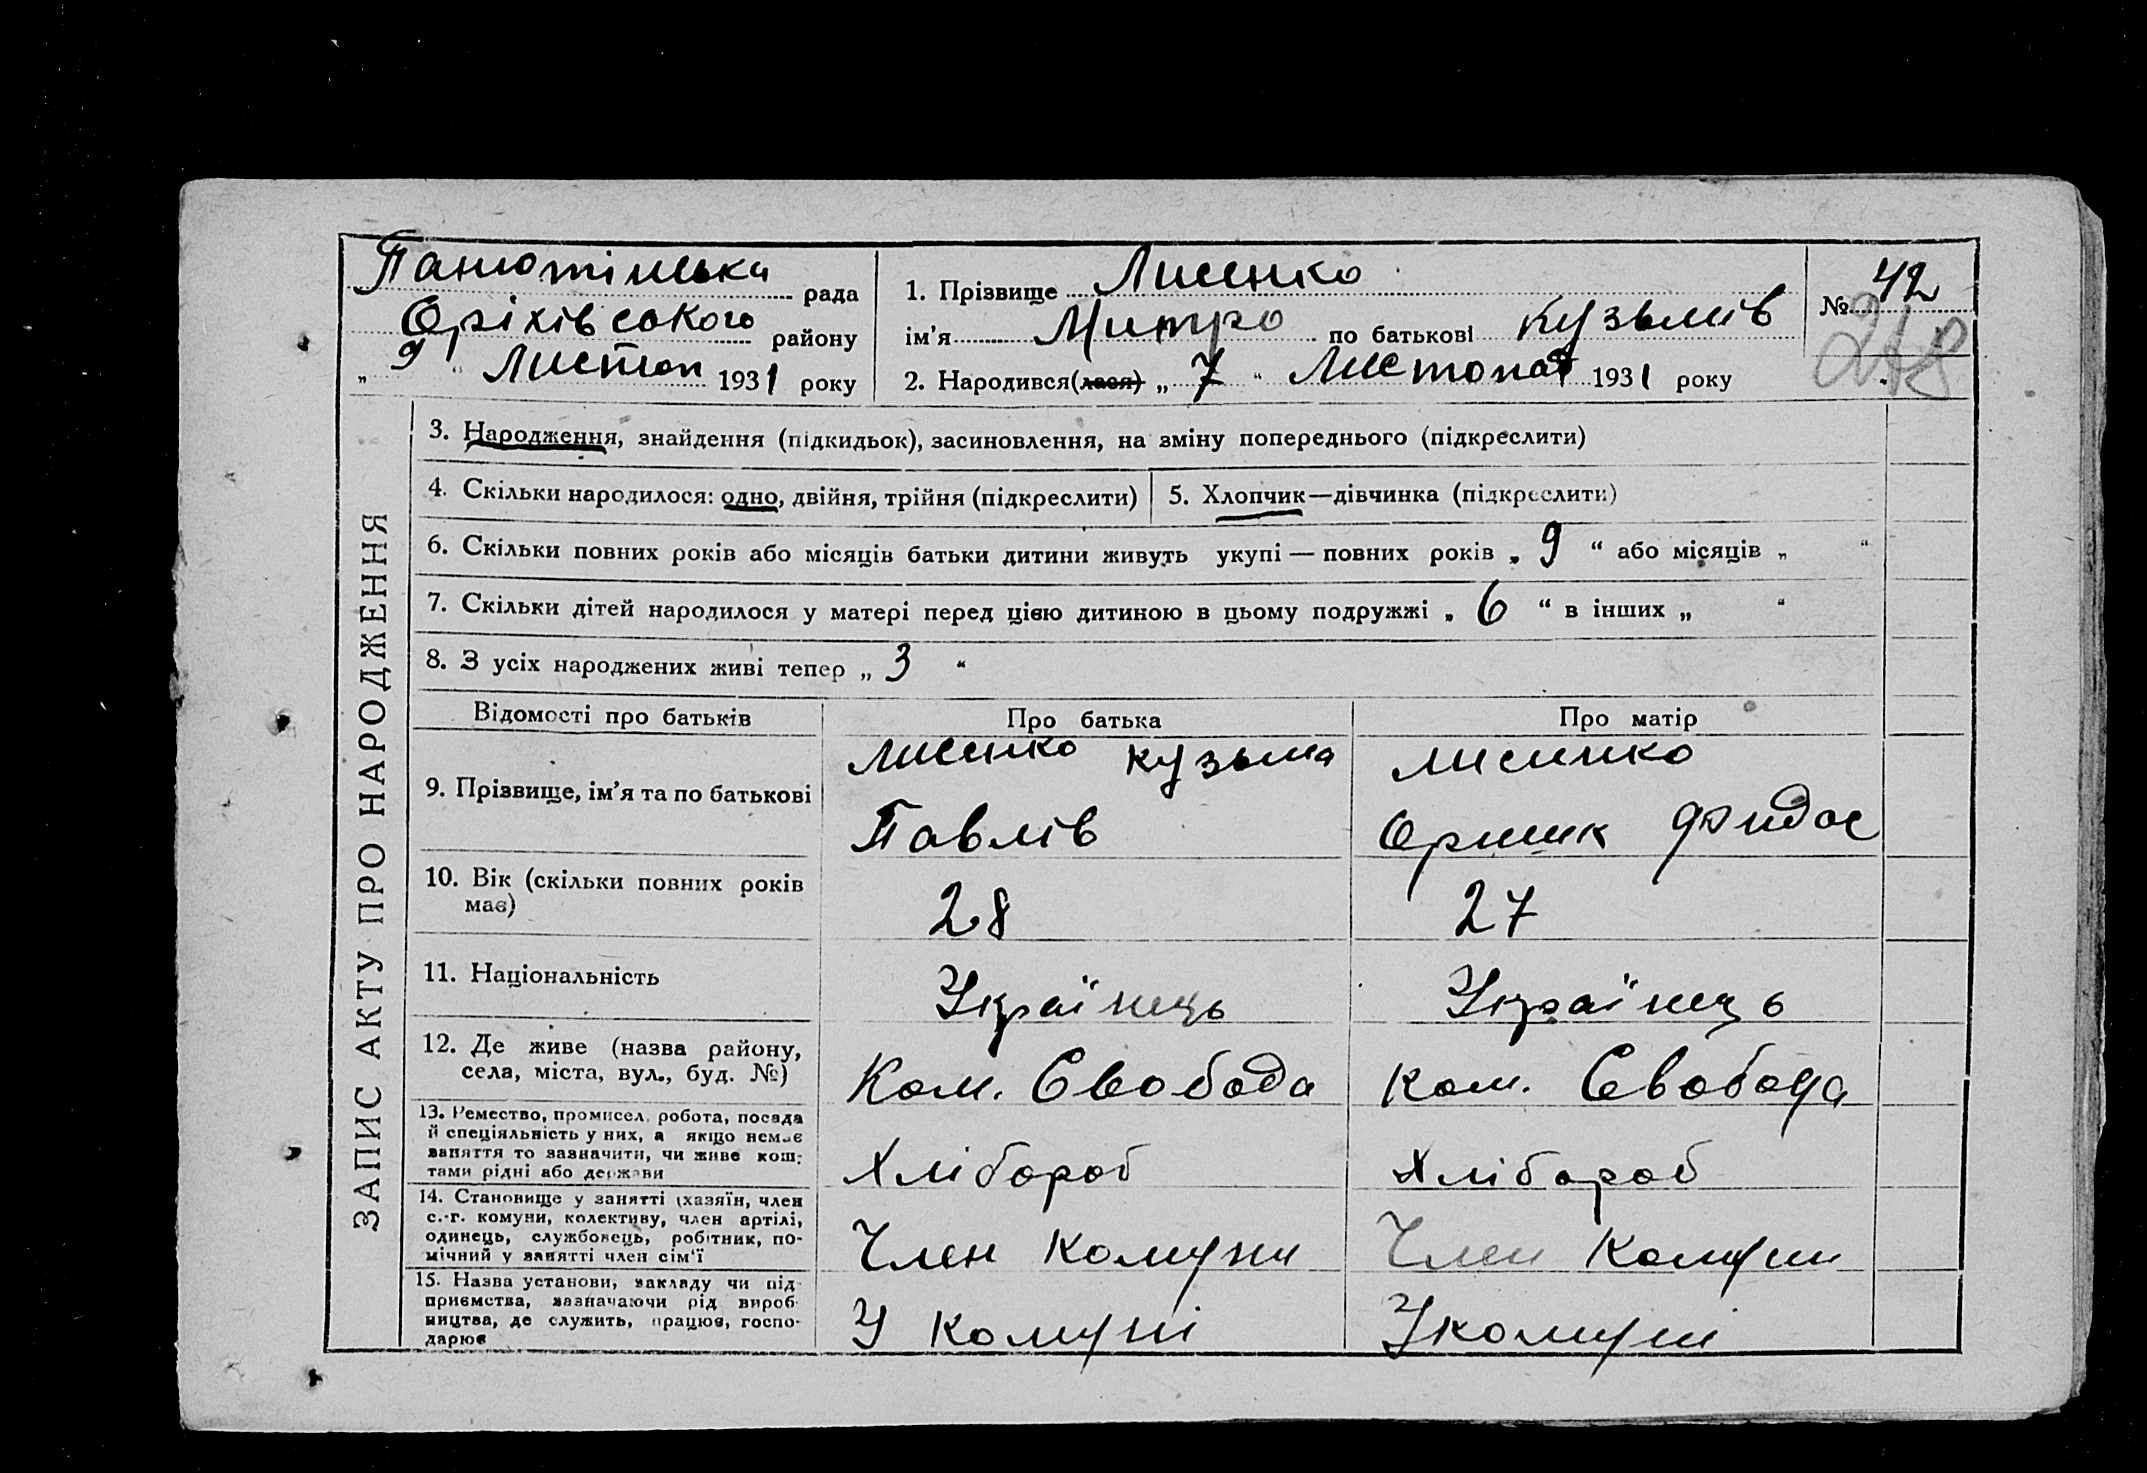 ЗАПИС АКТУ ПРО НАРОДЖЕННЯ
Панютінська рада
Оріхівського району
„ 9 “ Листоп 1931 року
1. Прізвище Лисенко
ім’я Митро по батькові Кузьмів
2. Народився(лася) „ 7 “ Листопад 1931 року
№ 42
218
3. Народження, знайдення (підкидьок), засиновлення, на зміну попереднього (підкреслити)
4. Скільки народилося: одно, двійня, трійня (підкреслити)
5. Хлопчик—дівчинка (підкреслити)
6. Скільки повних років або місяців батьки дитини живуть укупі — повних років „ 9 “ або місяців „ “
7. Скільки дітей народилося у матері перед цією дитиною в цьому подружжі „ 6 “ в інших „ “
8. З усіх народжених живі тепер „ 3 “
Відомості про батьків
Про батька
Про матір
9. Прізвище, ім’я та по батькові
Лисенко Кузьма
Павлів
Лисинко
10. Вік (скільки повних років
має)
28
27
11. Національність
Українець
Українець
12. Де живе (назва району,
села, міста, вул., буд. №)
Ком. Свобода
Ком. Свобода
13. Ремество, промисел, робота, посада
й спеціяльність у них, а якщо немає
заняття то зазначити, чи живе кош-
тами рідні або держави
Хлібороб
Хлібороб
14. Становище у занятті (хазяїн, член
с.-г. комуни, колективу, член артілі,
одинець, службовець, робітник, по-
мічний у занятті член сім’ї
Член Комуни
Член Комуни
15. Назва установи, закладу чи під-
приємства, зазначаючи рід вироб-
ництва, де служить, працює, госпо-
дарює
У Комуні
У комуні